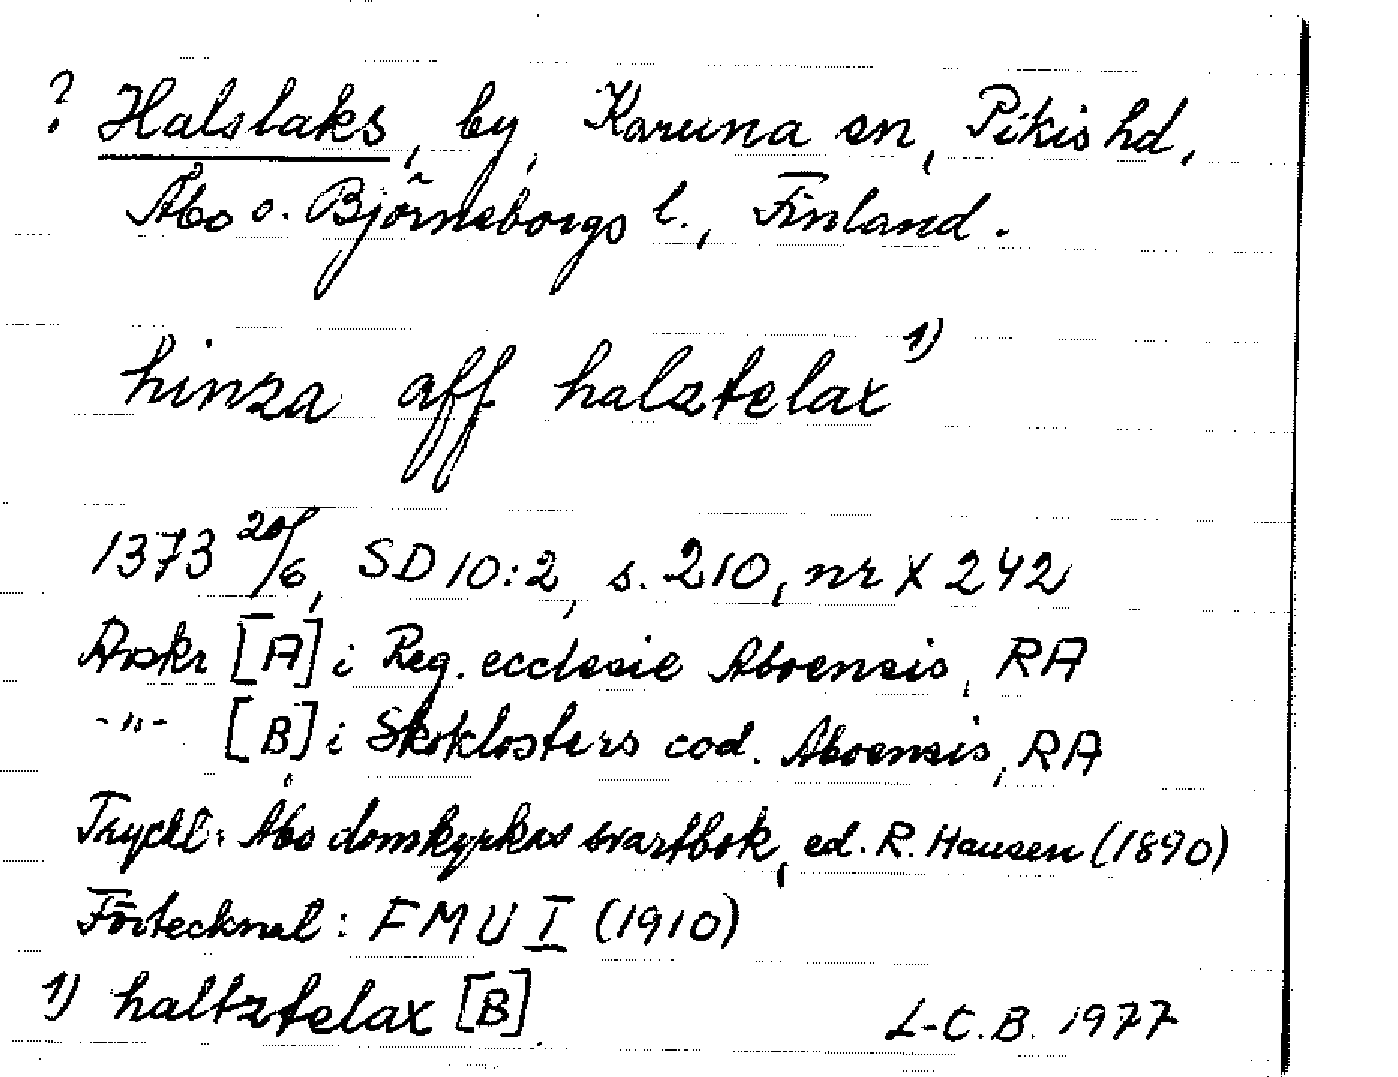 ? Halslaks, by, Karuna sn, Pikis hd,
Åbo o. Björneborgs l., Finland.
hinza aff halztelax 1)
1373 20/6, SD 10:2, s. 210, nr X 242
Avskr [A] i Reg. ecclesie Aboensis, RA
-"- [B] i Skoklosters cod. Aboensis, RA
Tryckt: Åbo domkyrkas svartbok, ed. R. Hausen (1890)
Förtecknat: FMU I (1910)
1) haltztelax [B]
L-C.B. 1977